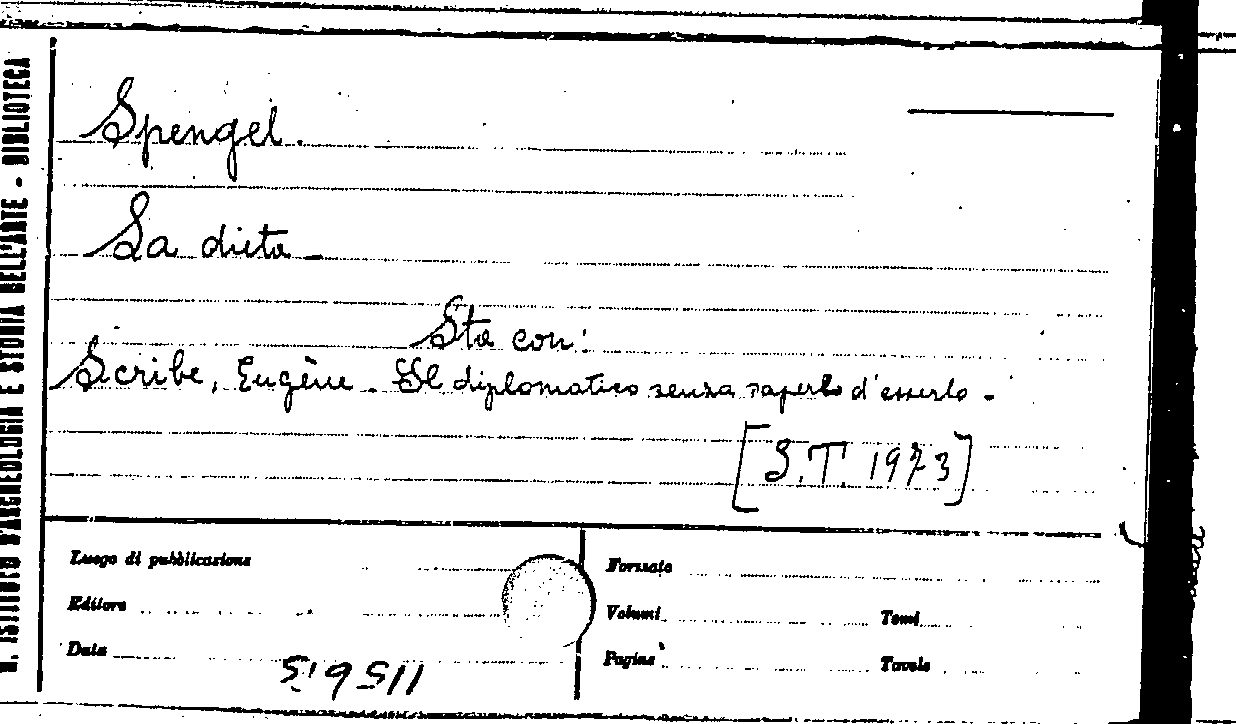 R. ISTITUTO D'ARCHEOLOGIA E STORIA DELL'ARTE - BIBLIOTECA
Spengel.
La dieta
Sta con:
Scribe, Eugène. Il diplomatico senza saperlo d'esserlo.
[S.T. 1973]
Luogo di pubblicazione
Editore
Data
Formato
Volumi
Tomi
Pagine
Tavole